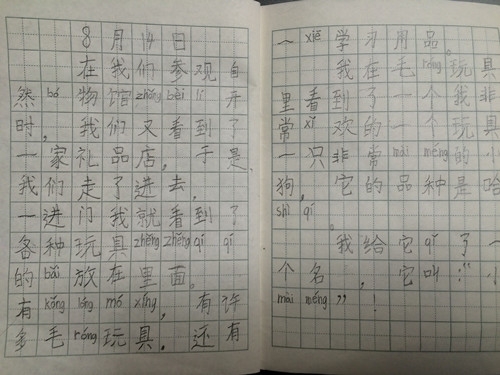 8月14日
在我们参观自
然bó物馆zhǔn bèi lí开
时，我们又看到了
一家礼品店，于是
我们走了进去。
一进门我就看到了
各种玩具zhěng zhěng qí qí
的bǎi放在里面。
有kǒng lóng mó xíng，有许
多毛róng玩具，还有
一xiē学习用品。
我在毛róng玩具
里看到了一个我非
常xǐ欢的一个玩具
一只非常mài méng的小
狗，它的品种是哈
shì qí。
我给它qǐ了一
个名，它叫：“小
mài méng”！